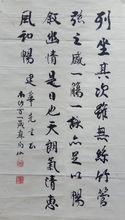 列坐其次雖無絲竹管
弦之盛一觴一詠亦足以暢
叙幽情是日也天朗氣清惠
風和暢
建華先生